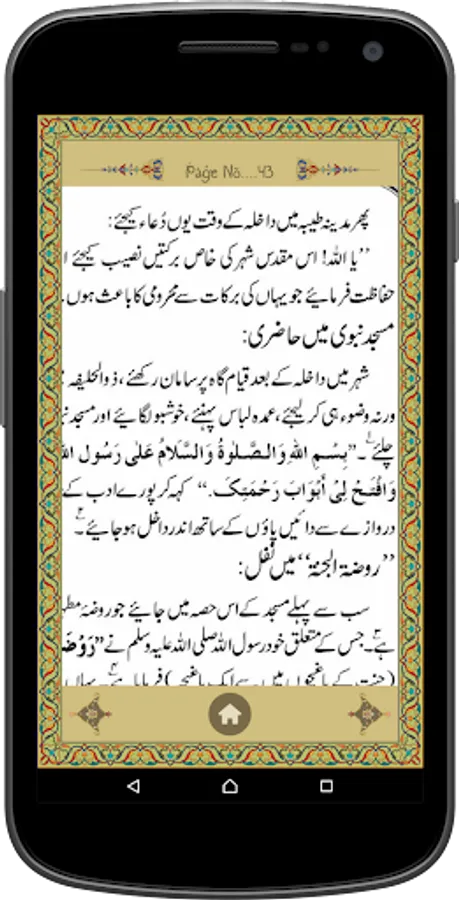 Page No....43
پھر مدینہ طیبہ میں داخلہ کے وقت یوں دُعاء کیجئے:
’’یا اللہ! اس مقدس شہر کی خاص برکتیں نصیب کیجئے ا
حفاظت فرمایئے جو یہاں کی برکات سے محرومی کا باعث ہوں۔
مسجد نبوی میں حاضری:
شہر میں داخلہ کے بعد قیام گاہ پر سامان رکھئے، ذوالحلیفہ
ورنہ وضوء ہی کر لیجئے، عمدہ لباس پہنئے، خوشبو لگایئے اور مسجد نب
چلئے۔ ’’بِسْمِ اللهِ وَالصَّلٰوةُ وَالسَّلَامُ عَلٰی رَسُولِ الله
وَافْتَحْ لِیْ أَبْوَابَ رَحْمَتِکَ۔‘‘ کہہ کر پورے ادب کے
دروازے سے دائیں پاؤں کے ساتھ اندر داخل ہو جایئے۔
’’روضۃ الجنۃ‘‘ میں نفل:
سب سے پہلے مسجد کے اس حصہ میں جایئے جو روضۂ مطہ
ہے۔ جس کے متعلق خود رسول اللہ صلی اللہ علیہ وسلم نے ’’رَوْضَ
(جنت کے باغیچوں میں سے ایک باغیچہ) فرمایا ہے۔ یہاں